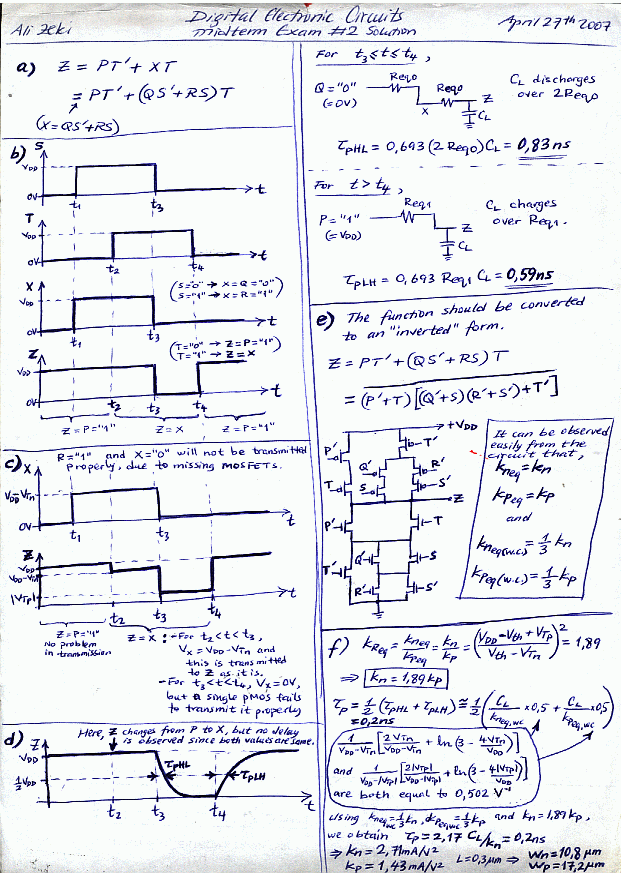 Ali Zeki
Digital Electronic Circuits
Midterm Exam #2 Solution
April 27th 2007
a) Z = PT' + XT
= PT' + (QS' + RS) T
(X = QS' + RS)
b)
S
VDD
0V
t1 t3 t
T
VDD
0V
t2 t4 t
X
(S="0" → X=Q="0"
S="1" → X=R="1")
VDD
0V
t1 t3 t
Z
(T="0" → Z=P="1"
T="1" → Z=X)
VDD
0V
t2 t3 t4 t
Z=P="1" Z=X Z=P="1"
c)
R="1" and X="0" will not be transmitted
properly, due to missing MOSFETs.
X
VDD-VTn
0V
t1 t3 t
Z
VDD
VDD-VTn
|VTp|
t2 t3 t4 t
Z=P="1"
No problem
in transmission
Z=X : - For t2<t<t3,
VX = VDD-VTn and
this is transmitted
to Z as it is.
- For t3<t<t4, VX=0V,
but a single pMOS fails
to transmit it properly
d)
Here, Z changes from P to X, but no delay
is observed since both values are same.
Z
VDD
½VDD
τPHL τPLH
t2 t3 t4 t
For t3≤t≤t4,
Q="0"
(=0V)
Req0 Req0
X Z
CL
CL discharges
over 2Req0
τPHL = 0,693 (2Req0) CL = 0,83ns
For t>t4,
P="1"
(=VDD)
Req1
Z
CL
CL charges
over Req1.
τPLH = 0,693 Req1 CL = 0,59ns
e) The function should be converted
to an "inverted" form.
Z = PT' + (QS' + RS) T
= (P'+T) [(Q'+S)(R'+S')+T']
+VDD
P' T'
Q' R'
T S S'
Z
P' T
Q' S
T' R' S'
It can be observed
easily from the
circuit that,
kneq = kn
kpeq = kp
and
kneq(w.c) = 1/3 kn
kpeq(w.c) = 1/3 kp
f) kReq = kneq/kpeq = kn/kp = ((VDD-Vth+VTp)/(Vth-VTn))² = 1,89
⇒ kn = 1,89kp
τp = 1/2 (τPHL + τPLH) ≅ 1/2 (CL/kneq,wc × 0,5 + CL/kpeq,wc × 0,5)
= 0,2ns
1/(VDD-VTn) [2VTn/(VDD-VTn) + ln(3 - 4VTn/VDD)]
and 1/(VDD-|VTp|) [2|VTp|/(VDD-|VTp|) + ln(3 - 4|VTp|/VDD)]
are both equal to 0,502 V⁻¹
Using kneq,wc=1/3 kn, & kpeq,wc=1/3 kp and kn=1,89kp,
we obtain τp = 2,17 CL/kn = 0,2ns
⇒ kn = 2,71mA/V²
kp = 1,43mA/V²
L=0,3μm ⇒ Wn=10,8μm
Wp=17,2μm